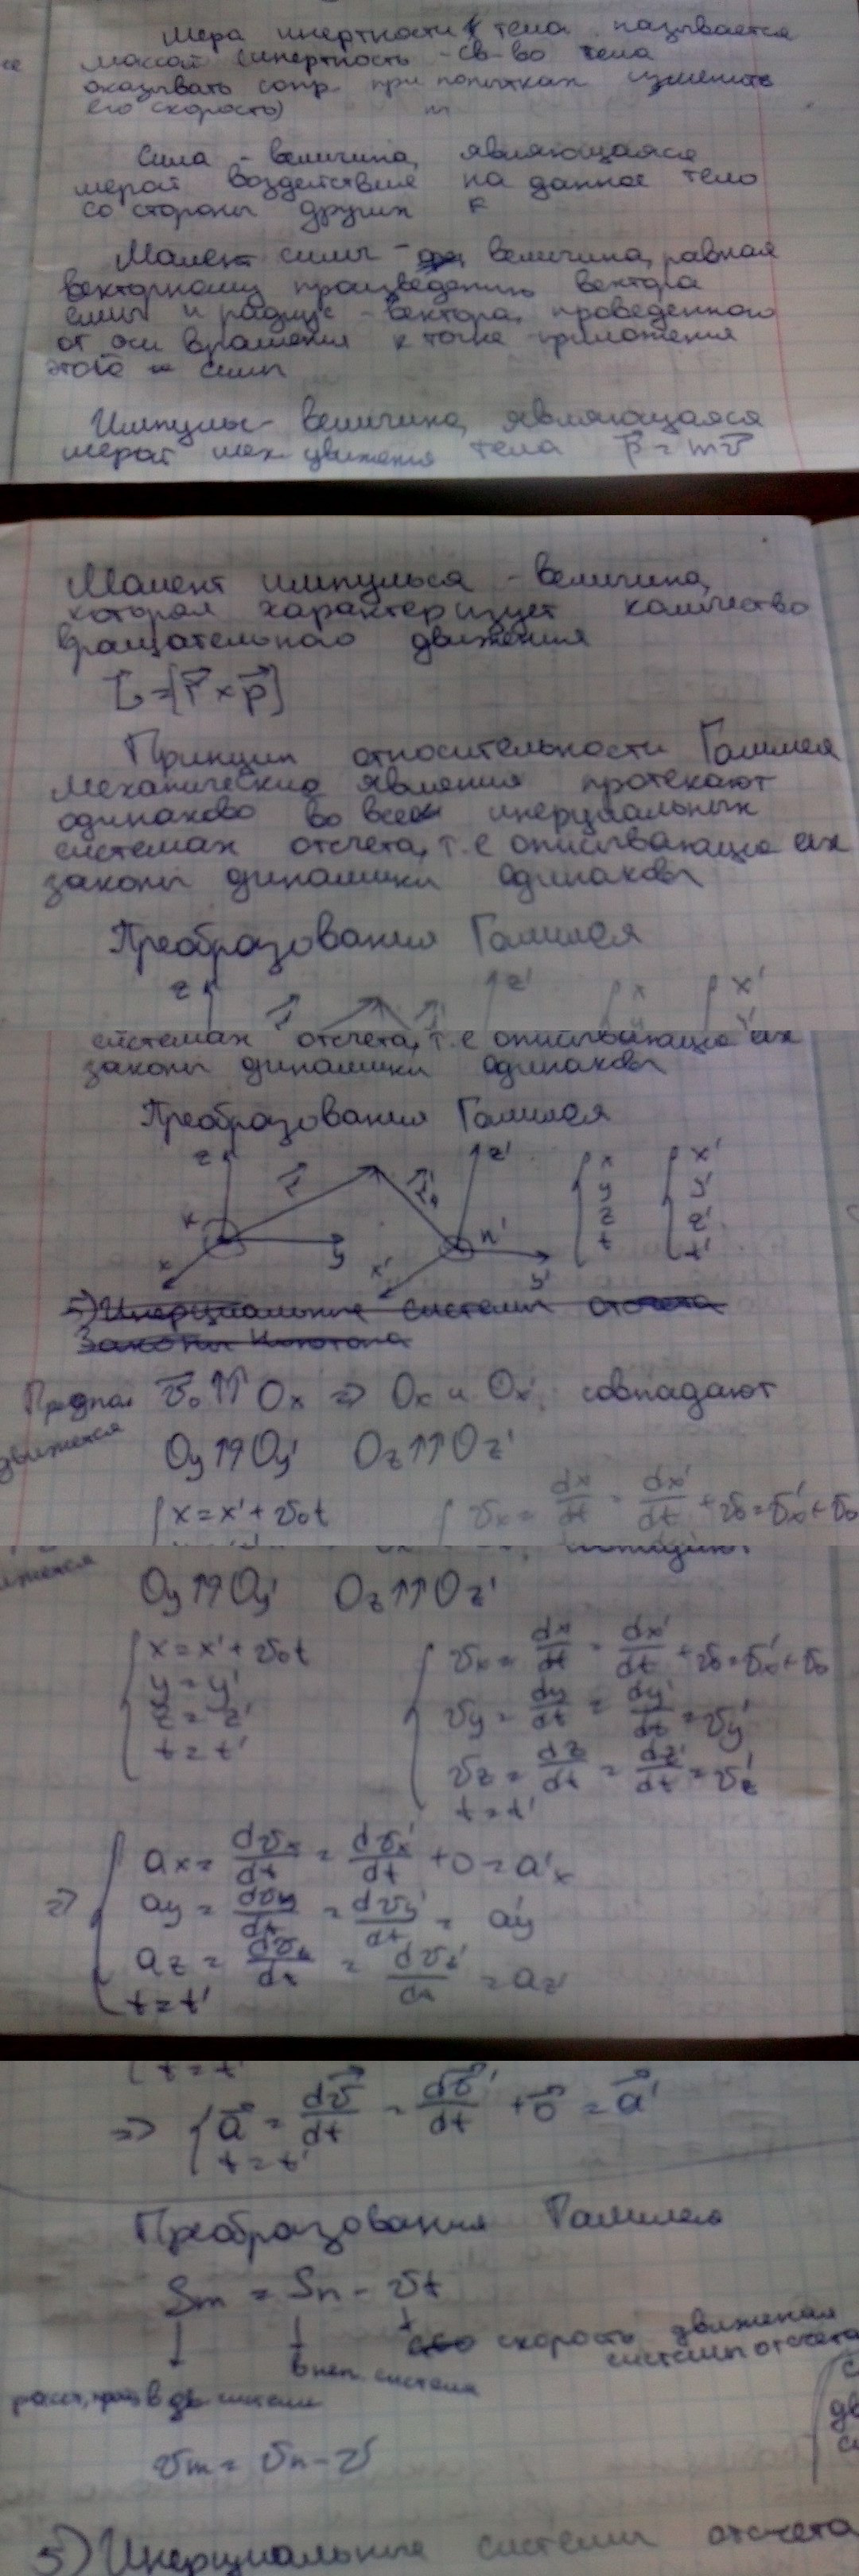 Мера инертности тела называется
массой (инертность - св-во тела
оказывать сопр. при попытках изменить
его скорость) m
Сила - величина, являющаяся
мерой воздействия на данное тело
со стороны других F
Момент силы - величина, равная
векторному произведению вектора
силы и радиус-вектора, проведенного
от оси вращения к точке приложения
этой силы
Импульс - величина, являющаяся
мерой мех. движения тела p⃗ = mv⃗
Момент импульса - величина,
которая характеризует количество
вращательного движения
L⃗ = [r⃗ × p⃗]
Принцип относительности Галилея
Механические явления протекают
одинаково во всех инерциальных
системах отсчета, т.е описывающие их
законы динамики одинаковы
Преобразования Галилея
z r⃗ z' x x'
системах отсчета, т.е описывающие их
законы динамики одинаковы
Преобразования Галилея
z r⃗ z' x x'
y y'
K K' z z'
x y x' y' t t'
5) Инерциальные системы отсчета
Законы Ньютона
v⃗₀ ↑↑ Ox ⇒ Ox и Ox' совпадают
движется
Oy ↑↑ Oy' Oz ↑↑ Oz'
x = x' + v₀t vx = dx/dt = dx'/dt + v₀ = vx' + v₀
Oy ↑↑ Oy' Oz ↑↑ Oz'
x = x' + v₀t vx = dx/dt = dx'/dt + v₀ = vx' + v₀
y = y' vy = dy/dt = dy'/dt = vy'
z = z' vz = dz/dt = dz'/dt = vz'
t = t' t = t'
ax = dvx/dt = dvx'/dt + 0 = a'x
⇒ ay = dvy/dt = dvy'/dt = ay'
az = dvz/dt = dvz'/dt = az'
t = t'
t = t'
⇒ a⃗ = dv⃗/dt = dv⃗'/dt + 0⃗ = a⃗'
t = t'
Преобразования Галилея
Sm = Sn - vt
скорость движения
системы отсчета
в неп. системе
в дв системе
vm = vn - v
5) Инерциальные системы отсчета